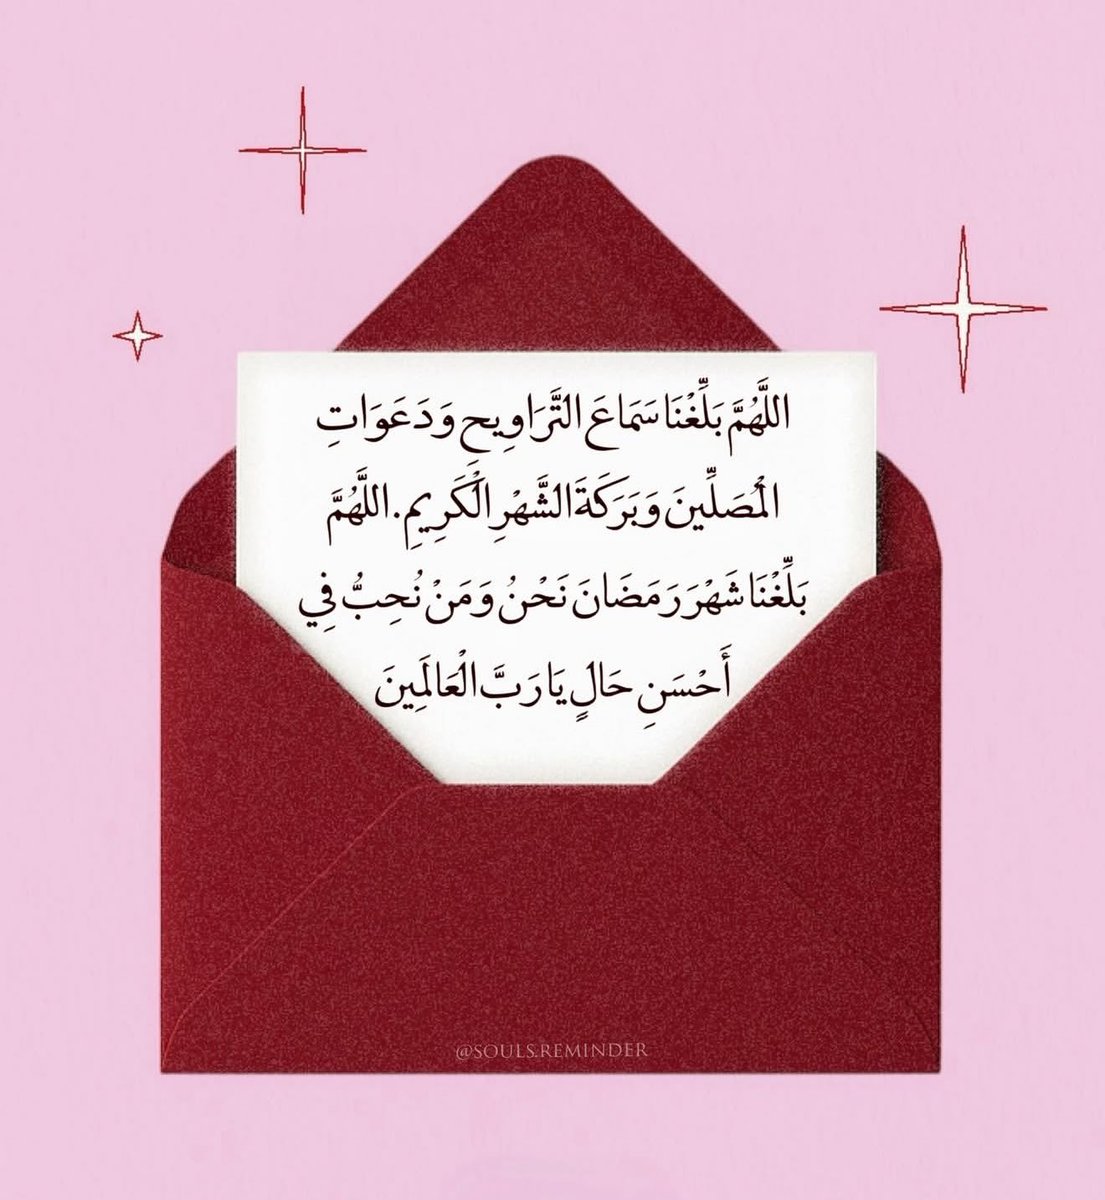 اللَّهُمَّ بَلِّغْنَا سَمَاعَ التَّرَاوِيحِ وَدَعَوَاتِ
الْمُصَلِّينَ وَبَرَكَةَ الشَّهْرِ الْكَرِيمِ. اللَّهُمَّ
بَلِّغْنَا شَهْرَ رَمَضَانَ نَحْنُ وَمَنْ نُحِبُّ فِي
أَحْسَنِ حَالٍ يَا رَبَّ الْعَالَمِينَ
@SOULS.REMINDER